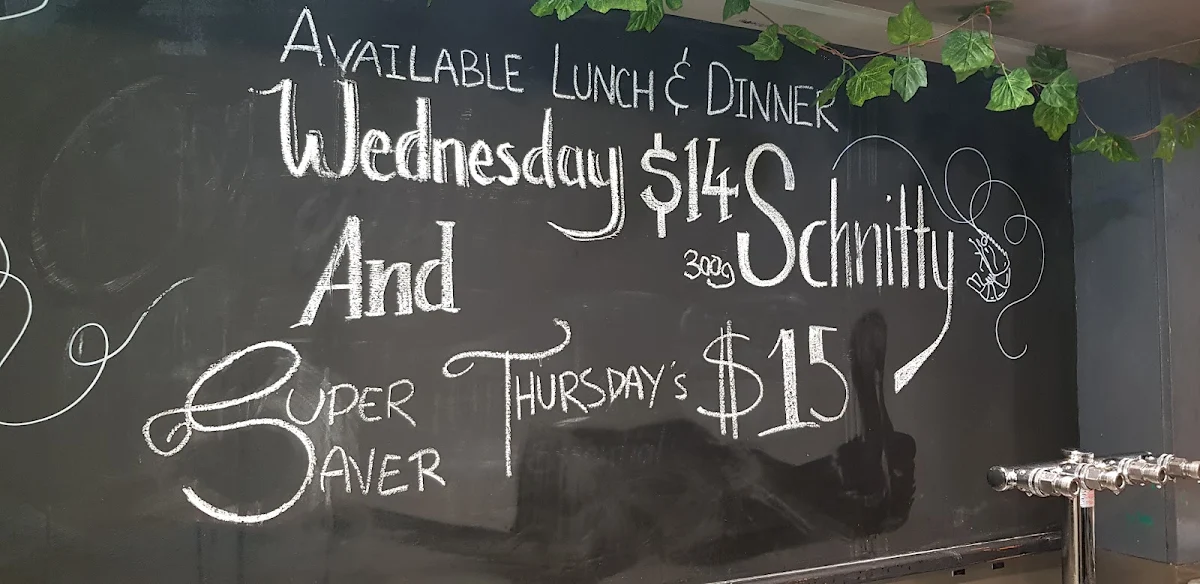 AVAILABLE LUNCH & DINNER
Wednesday $14 Schnitty
And 300g
SUPER THURSDAY'S $15
SAVER